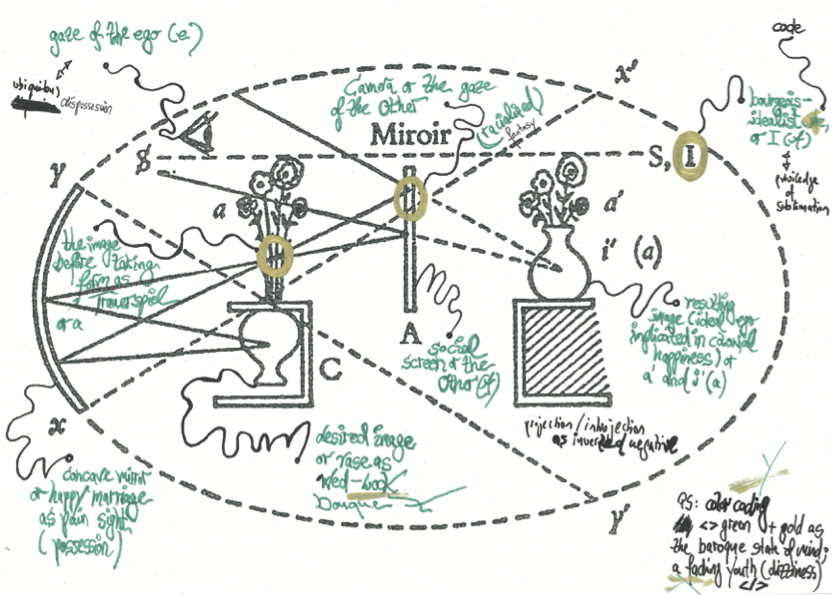 gaze of the ego (e)
ubiquibus
dispossession
code
x'
Camera or the gaze
of the Other
(racialized)
fantasy
Miroir
$
S, I
bourgeois-
idealist
or I (of)
priviledge
of
sublimation
y
a
a'
i' (a)
the image
before taking
form as
Trauerspiel
or a
A
C
social
screen or the
Other (of)
resulting
image (ideal ego
implicated in colonial
happiness) or
a' and i' (a)
projection/introjection
as inverted negative
x
y'
concave mirror
or happy marriage
as pain sight
(possession)
desired image
or vase as
Wed-book
Baroque
PS: color coding
<> green + gold as
the baroque state of mind;
a fading youth (dizziness)
</>